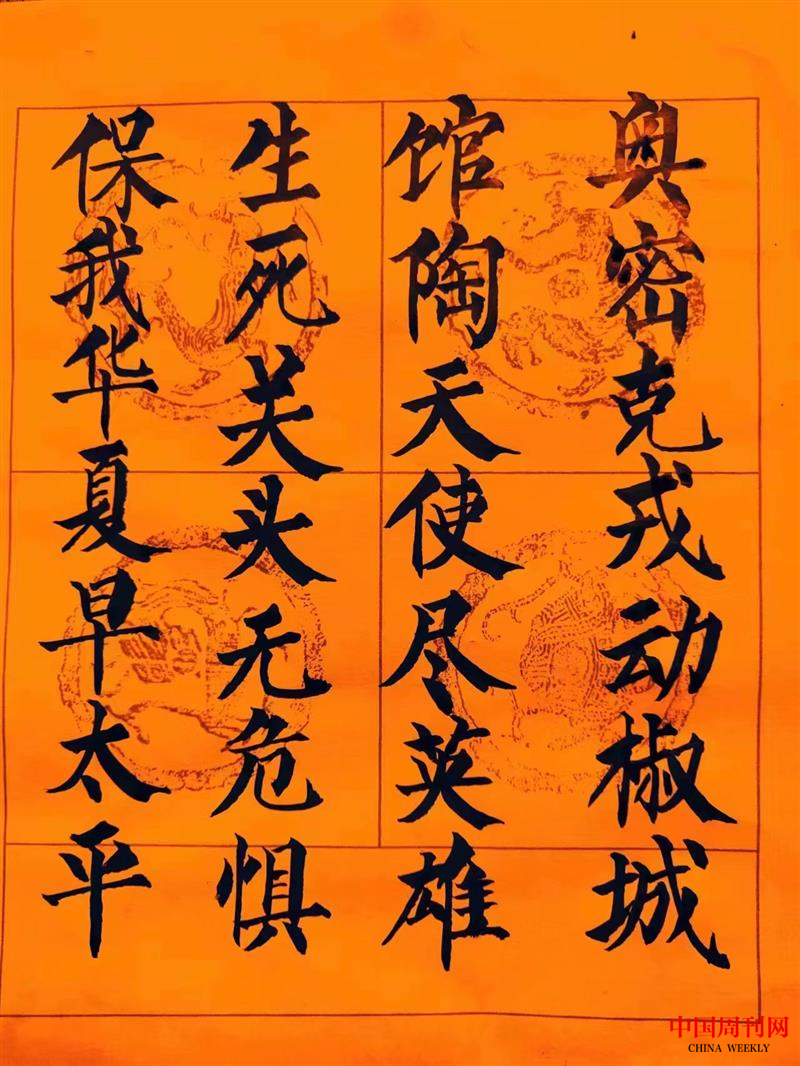 奥密克戎动椒城
馆陶天使尽英雄
生死关头无危惧
保我华夏早太平
中国周刊网
CHINA WEEKLY